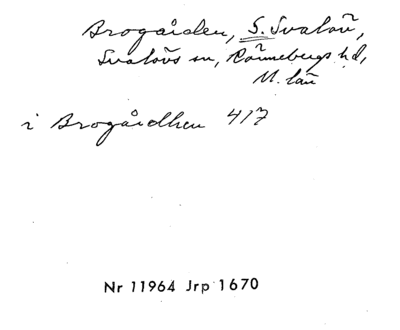 Brogården, S. Svalöv,
Svalövs sn, Rönnebergs hd,
M. län
i Brogårdhen 4/7
Nr 11964 Jrp 1670